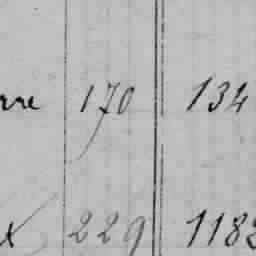 rre 170 134
x 229 1182